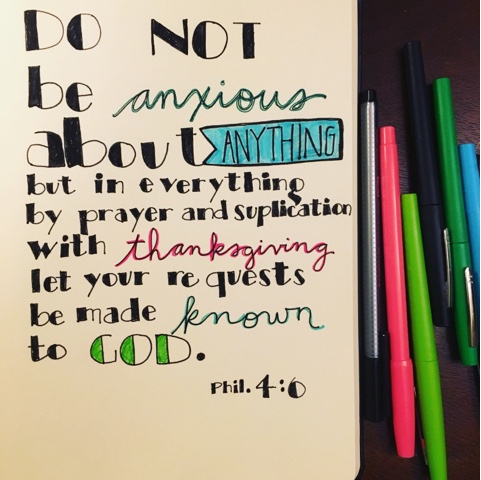 DO NOT
be anxious
about ANYTHING
but in everything
by prayer and suplication
with thanksgiving
let your requests
be made known
to GOD.
Phil. 4:6